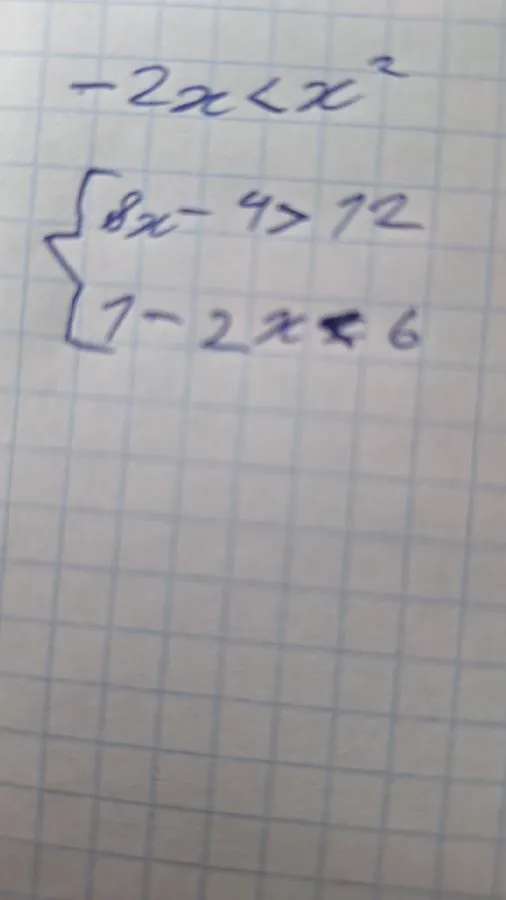 -2x < x²
{8x - 4 > 12
{1 - 2x < 6